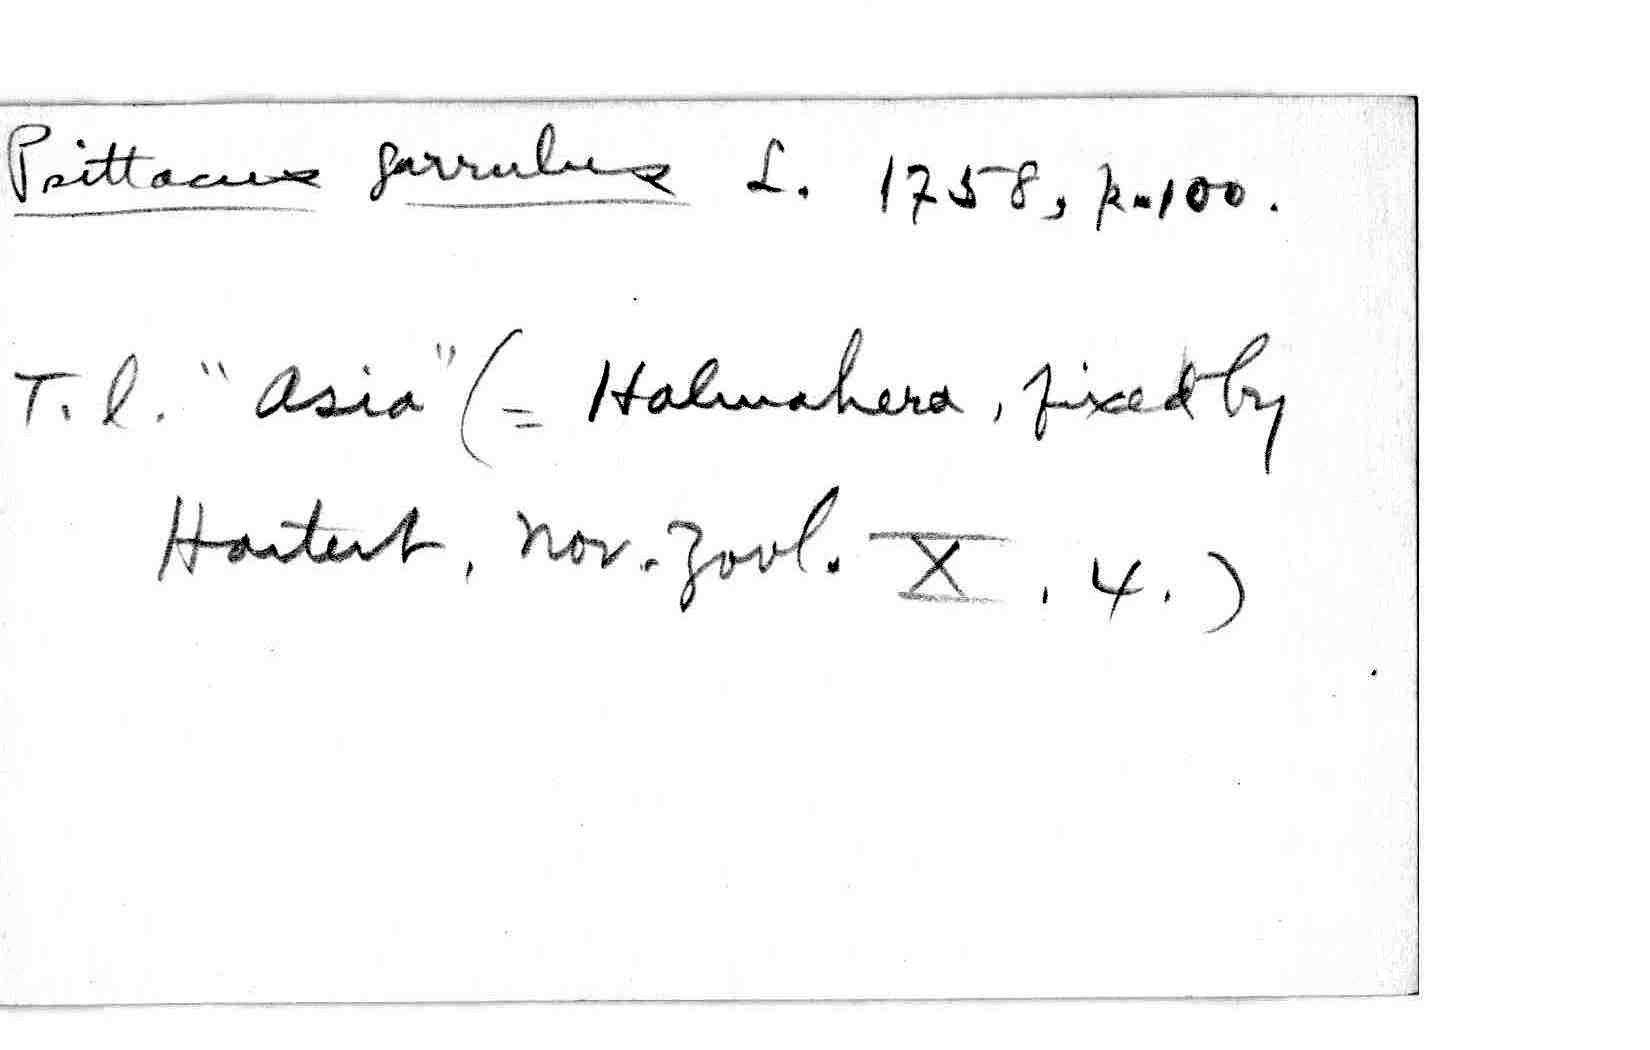 Psittacus garrulus L. 1758, p. 100.
T. l. "Asia" (= Halmahera, fixed by
Hartert, Nov. Zool. X, 4.)